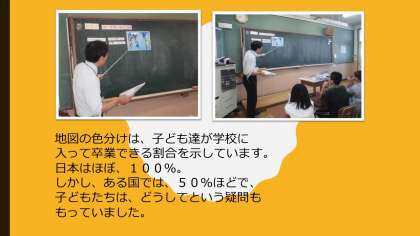 地図の色分けは、子ども達が学校に
入って卒業できる割合を示しています。
日本はほぼ、１００％。
しかし、ある国では、５０％ほどで、
子どもたちは、どうしてという疑問も
もっていました。